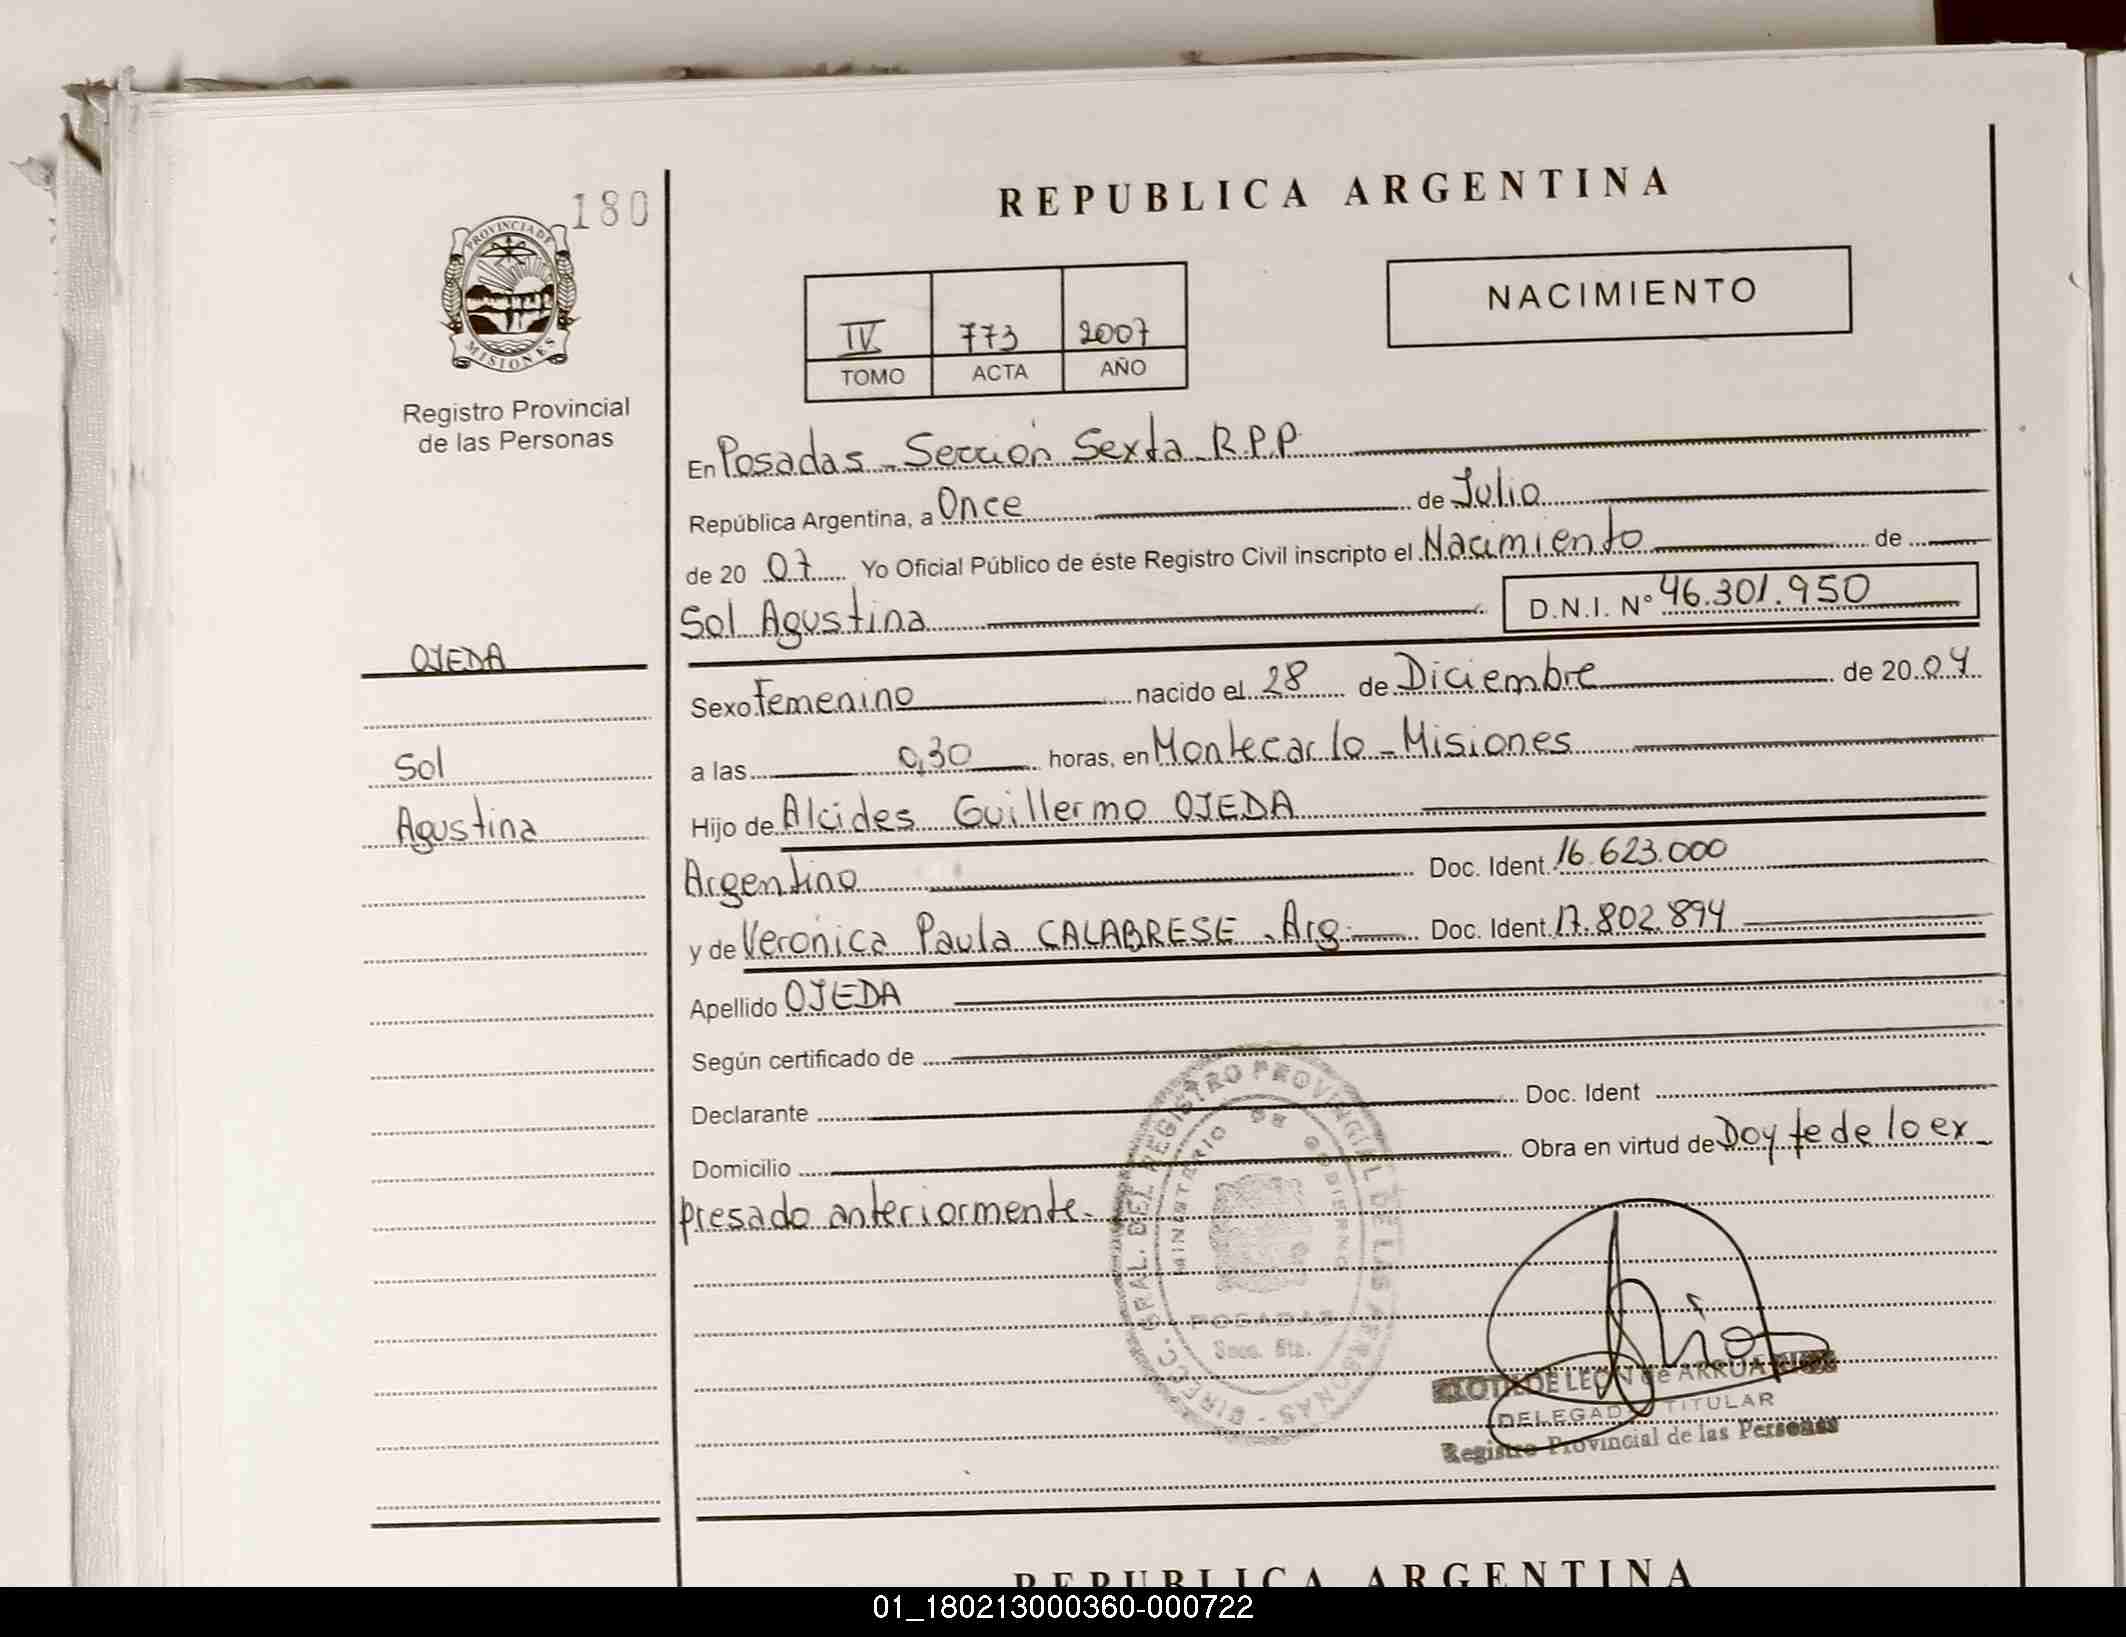 180
PROVINCIA DE
MISIONES
Registro Provincial
de las Personas
OJEDA
Sol
Agustina
REPUBLICA ARGENTINA
IV 773 2007
TOMO ACTA AÑO
NACIMIENTO
En Posadas - Sección Sexta R.P.P.
República Argentina, a Once de Julio
de 20 07 Yo Oficial Público de éste Registro Civil inscripto el Nacimiento de
Sol Agustina D.N.I. N° 46.301.950
Sexo Femenino nacido el 28 de Diciembre de 20 04
a las 0,30 horas, en Montecarlo - Misiones
Hijo de Alcides Guillermo OJEDA
Argentino Doc. Ident. 16.623.000
y de Verónica Paula CALABRESE - Arg. Doc. Ident. 17.802.894
Apellido OJEDA
Según certificado de
Declarante Doc. Ident
Domicilio Obra en virtud de Doy fe de lo ex
presado anteriormente.
DIRECC. GRAL. DEL REGISTRO PROVINCIAL DE LAS PERSONAS
MINISTERIO DE GOBIERNO
POSADAS
Secc. 6ta.
CLOTILDE LEON de ARRUA
DELEGADA TITULAR
Registro Provincial de las Personas
REPUBLICA ARGENTINA
01_180213000360-000722